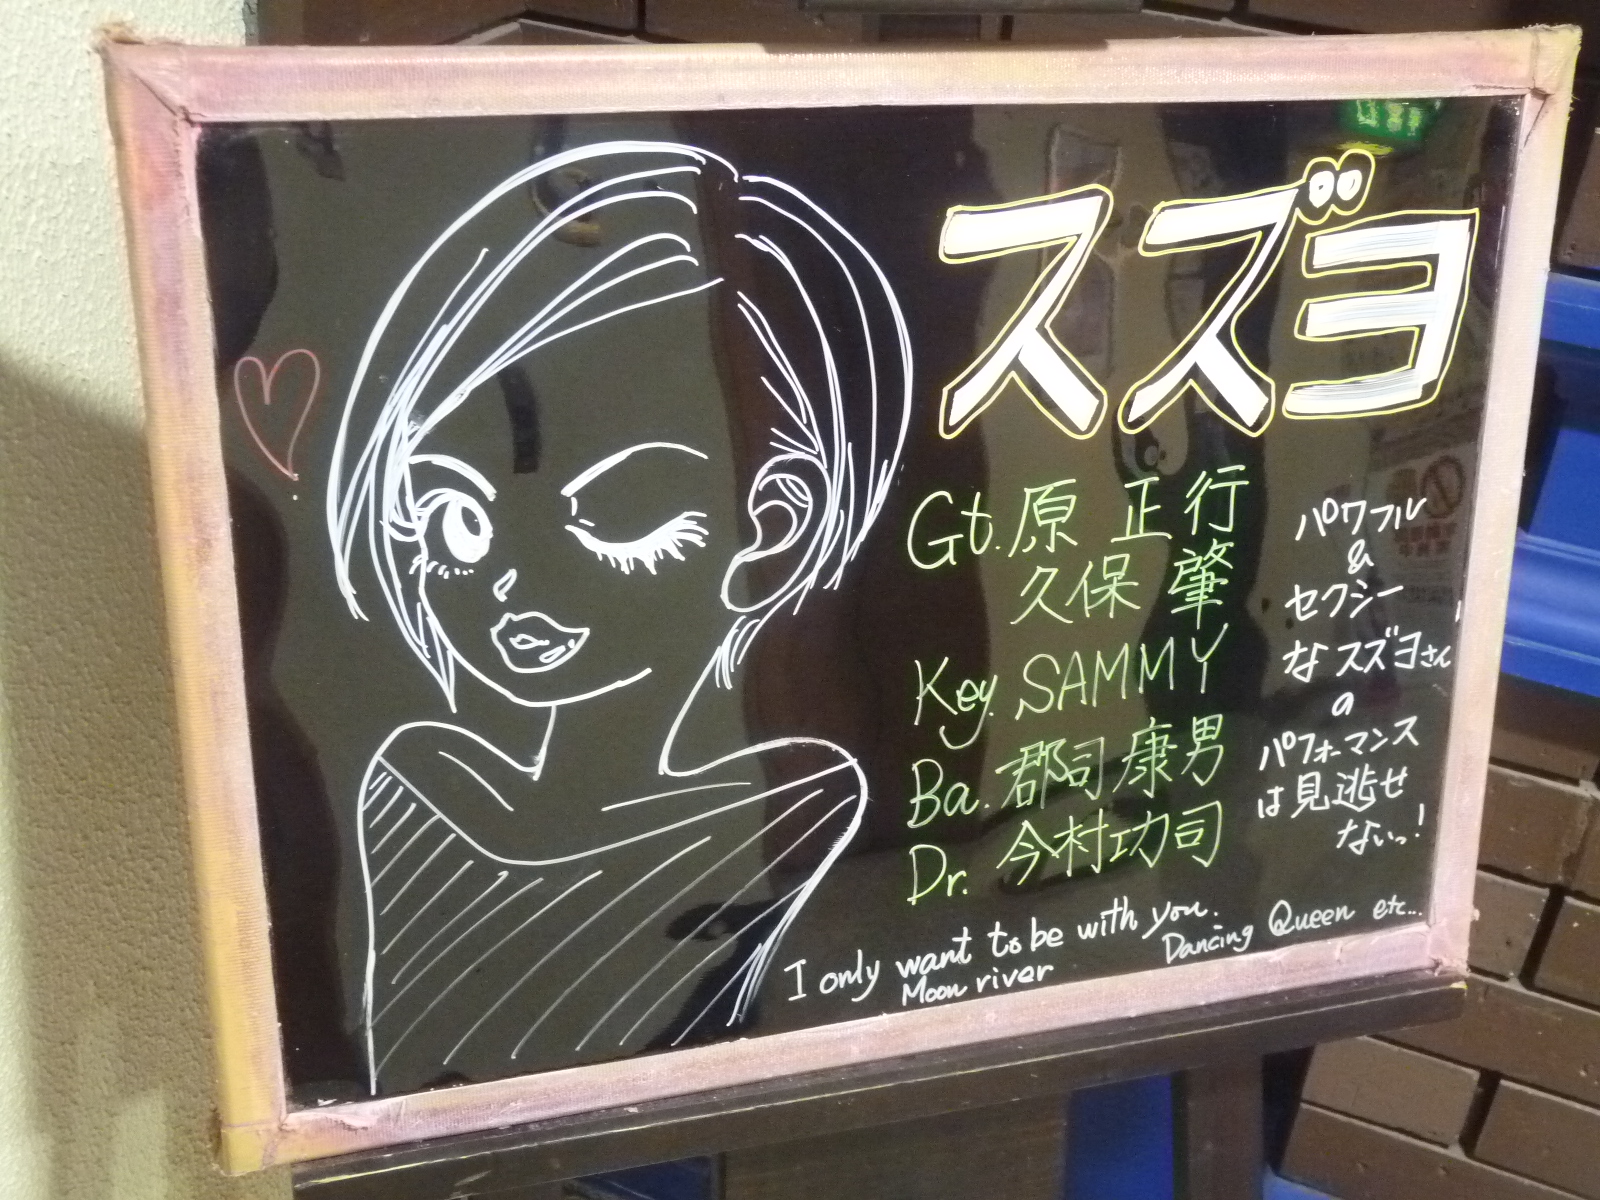 スズヨ
Gt. 原 正行
久保 肇
Key. SAMMY
Ba. 郡司 康男
Dr. 今村功司
パワフル
&
セクシー
な スズヨさん
の
パフォーマンス
は見逃せ
ないっ!
I only want to be with you.
Moon river
Dancing Queen etc...